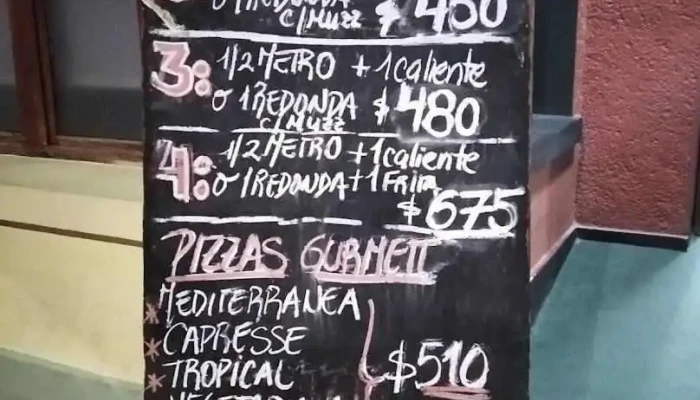 o 1 REDONDA
C/MUZZ $480
3: 1/2 METRO + 1 caliente
o 1 REDONDA $480
C/MUZZ
4: 1/2 METRO + 1 caliente
o 1 REDONDA + 1 FRIA
$675
PIZZAS GURMETT
* MEDITERRANEA
* CAPRESSE
* TROPICAL $510